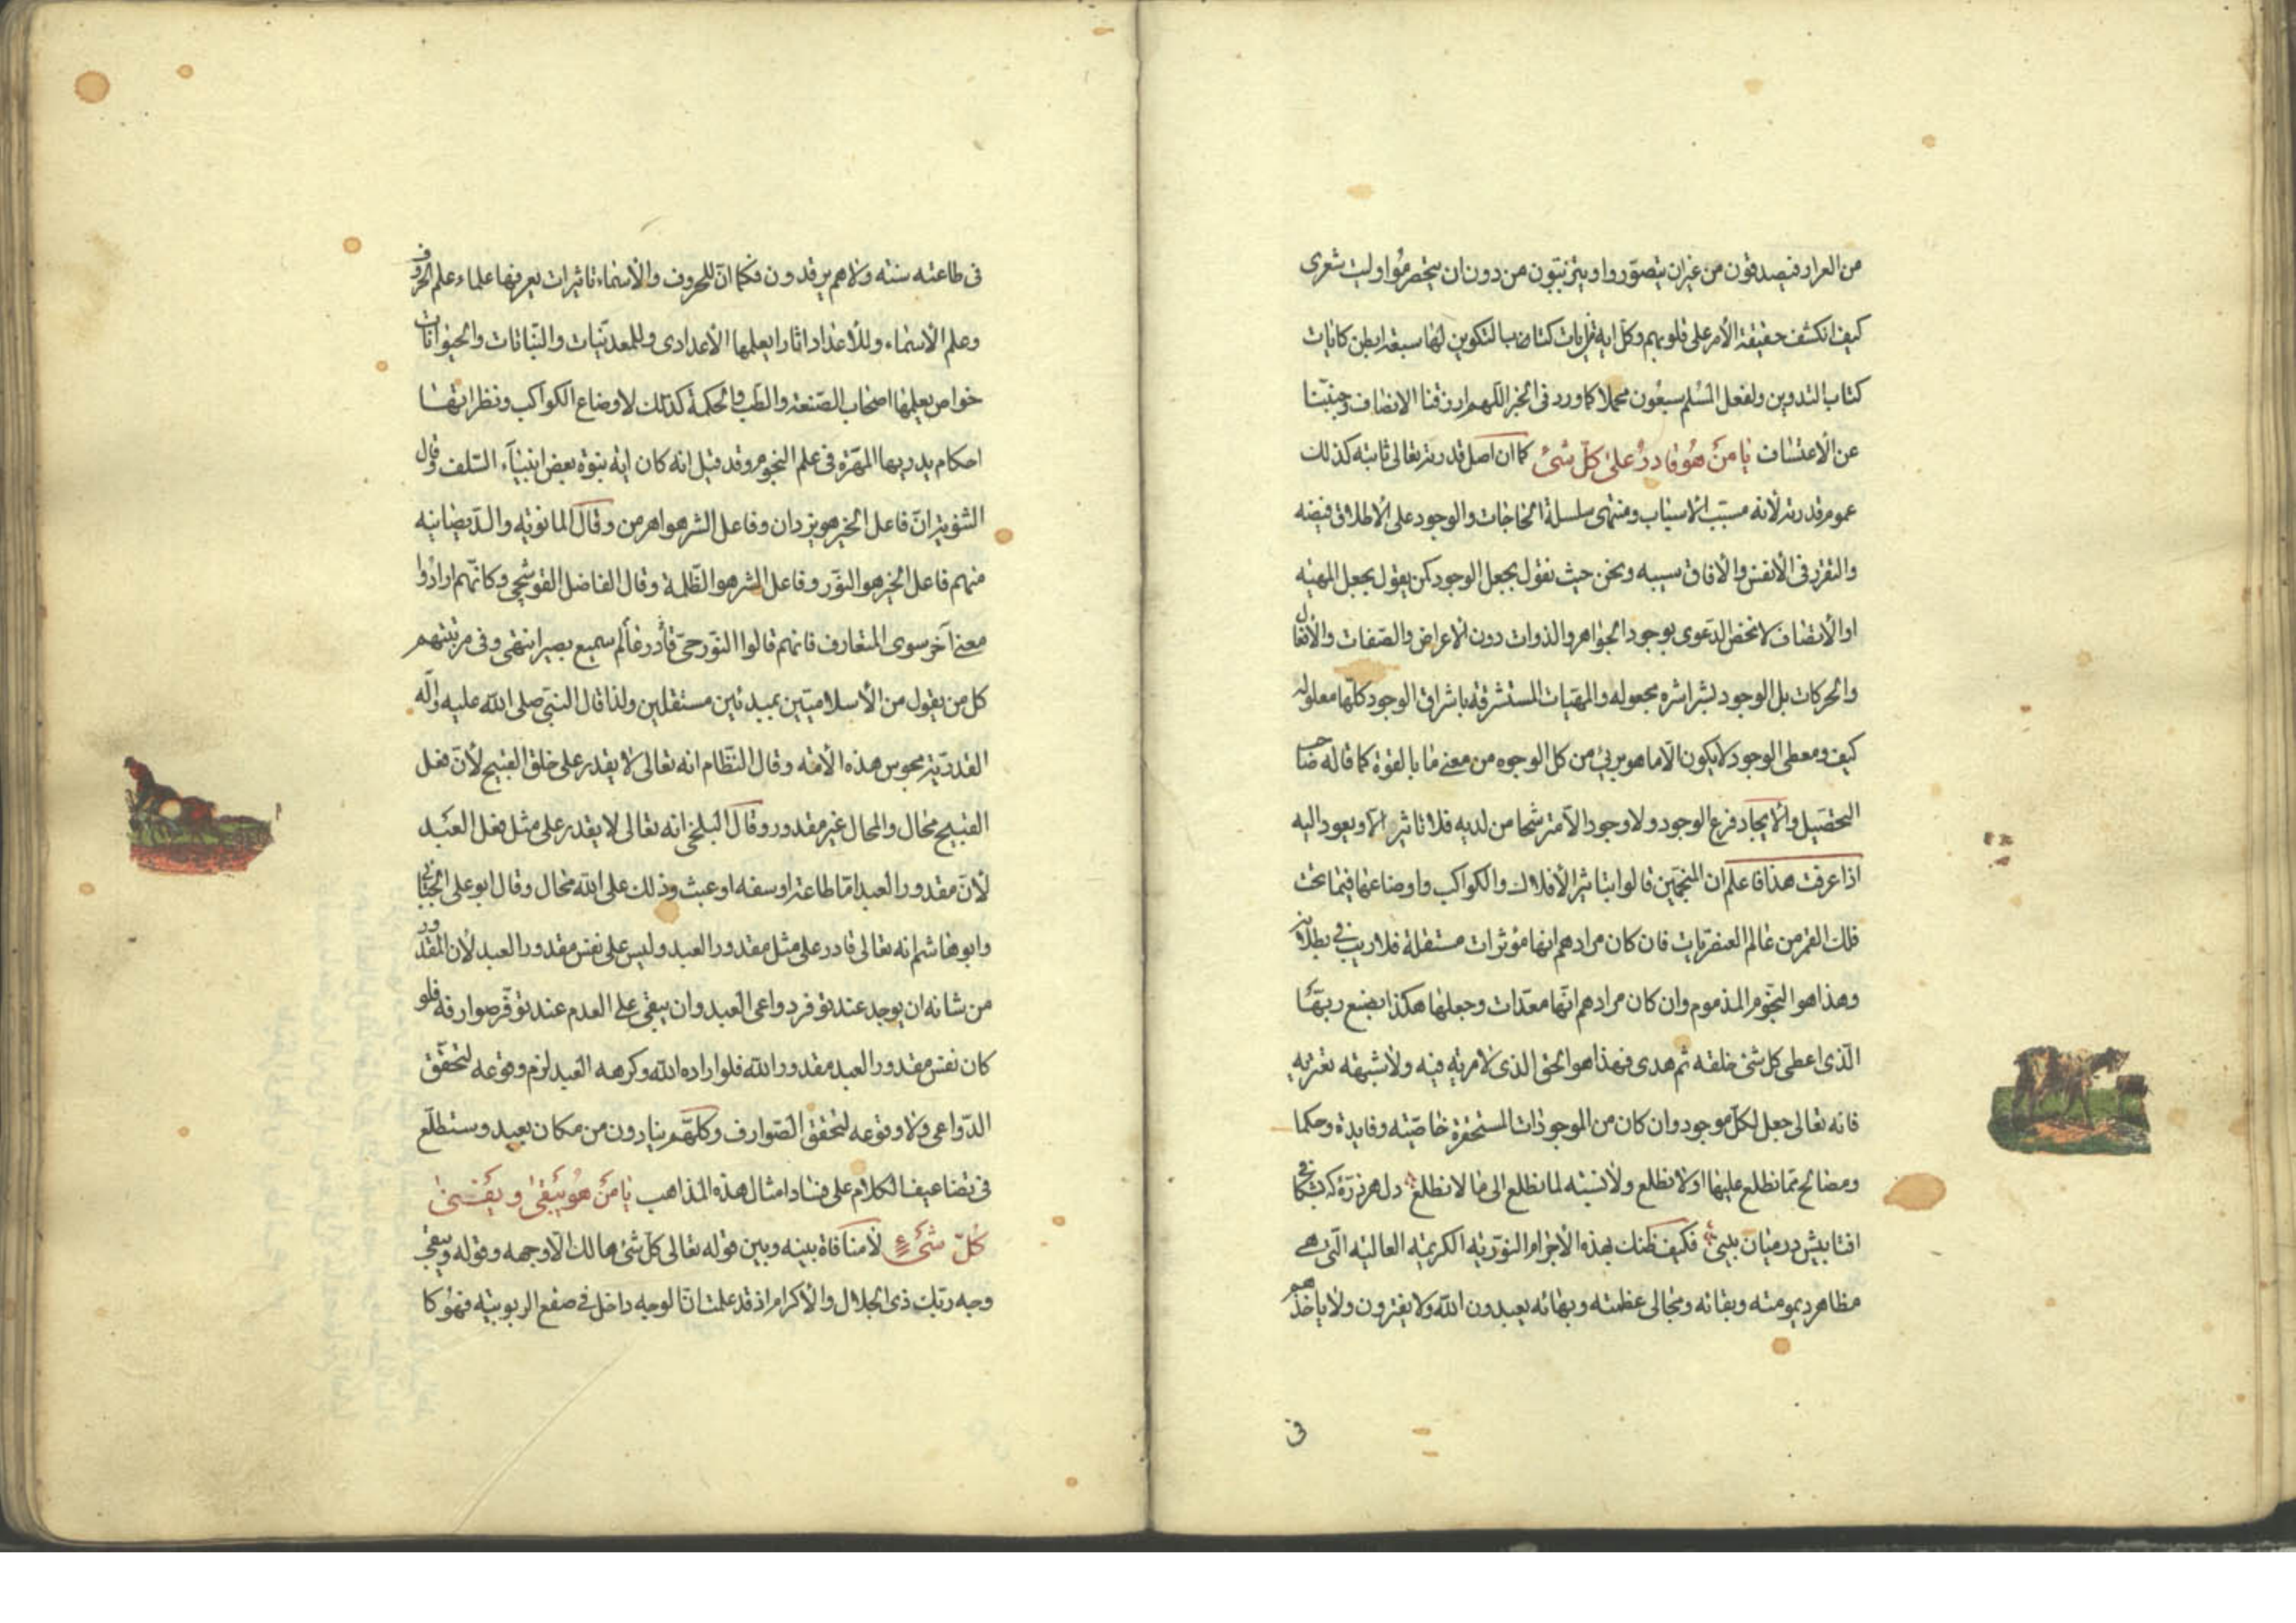 من العرار فيصدقون من غير ان يتصوروا ويتزينون من دون ان يتحصرموا وليت شعرى
كيف انكشف حقيقة الأمر على قلوبهم وكل اية من ايات كتاب التكوين لها سبعة ابطن كايات
كتاب التدوين ولفعل المسلم سبعون محملا كما ورد فى الخبر اللهم ارزقنا الانصاف وجنبنا
عن الأعتساف يا من هو قادر على كل شئ كما ان اصل قدرته تعالى ثابتة كذلك
عموم قدرته لأنه مسبب الأسباب ومنتهى سلسلة الحاجات والوجود على الأطلاق فيضه
والتفرد فى الأنفس والأفاق سيبه ونحن حيث نقول بجعل الوجود كمن يقول بجعل المهية
او الأتصاف لا نخص الدعوى بوجود الجواهر والذوات دون الأعراض والصفات والأفعال
والحركات بل الوجود بشراشره مجعوله والمهيات المستشرقة باشراق الوجود كلها معلوله
كيف ومعطى الوجود لا يكون الا ما هو برئ من كل الوجوه من معنى ما بالقوة كما قاله صاحب
التحصيل والأيجاد فرع الوجود ولا وجود الا مترشحا من لديه فلا تاثير الا ويعود اليه
اذا عرفت هذا فاعلم ان المنجمين قالوا بتاثير الأفلاك والكواكب واوضاعها فيما تحت
فلك القمر من عالم العنصريات فان كان مرادهم انها مؤثرات مستقلة فلا ريب فى بطلانه
وهذا هو النجوم المذموم وان كان مرادهم انها معدات وجعلها هكذا بصنع ربها
الذى اعطى كل شئ خلقه ثم هدى فهذا هو الحق الذى لا مرية فيه ولا شبهة تعتريه
فانه تعالى جعل لكل موجود وان كان من الموجودات المستحقرة خاصية وفايدة وحكما
ومصالح مما نطلع عليها او لا نطلع ولا نسبة لما نطلع الى ما لا نطلع دل هر ذره كه بشكافى
افتابيش درميان بينى فكيف ظنك بهذه الأجرام النورية الكريمة العالية التى هى
مظاهر ديموميته وبقائه ومجالى عظمته وبهائه يعبدون الله ولا يفترون ولا ياخذهم
فى
فى طاعته سنة ولا هم يرقدون فكما ان للحروف والأسماء تاثيرات يعرفها علماء علم الحروف
وعلم الأسماء وللأعداد اثارا يعلمها الأعدادى وللمعدنيات والنباتات والحيوانات
خواص يعلمها اصحاب الصنعة والطب والحكمة كذلك لاوضاع الكواكب ونظراتها
احكام يدريها المهرة فى علم النجوم وقد قيل انه كان اية نبوة بعض انبياء السلف وقال
الثنوية ان فاعل الخير هو يزدان وفاعل الشر هو اهرمن وقال المانوية والديصانية
منهم فاعل الخير هو النور وفاعل الشر هو الظلمة وقال الفاضل القوشجى وكانهم ارادوا
معنى آخر سوى المتعارف فانهم قالوا النور حى قادر عالم سميع بصير انتهى وفى مرتبتهم
كل من يقول من الأسلاميين بمبدئين مستقلين ولذا قال النبى صلى الله عليه وآله
القدرية مجوس هذه الأمة وقال النظام انه تعالى لا يقدر على خلق القبيح لأن فعل
القبيح محال والمحال غير مقدور وقال البلخى انه تعالى لا يقدر على مثل فعل العبد
لأن مقدور العبد اما طاعة او سفه او عبث وذلك على الله محال وقال ابو على الجبائى
وابو هاشم انه تعالى قادر على مثل مقدور العبد وليس على نفس مقدور العبد لأن المقدور
من شانه ان يوجد عند توفر دواعى العبد وان يبقى على العدم عند توفر صوارفه فلو
كان نفس مقدور العبد مقدور الله فلو اراده الله وكرهه العبد لزم وقوعه لتحقق
الدواعى ولا وقوعه لتحقق الصوارف وكلهم ينادون من مكان بعيد وستطلع
فى تضاعيف الكلام على فساد امثال هذه المذاهب يا من هو يبقى ويفنى
كل شئ لا منافاة بينه وبين قوله تعالى كل شئ هالك الا وجهه وقوله ويبقى
وجه ربك ذى الجلال والأكرام اذ قد علمت ان الوجه داخل فى صقع الربوبية فهو كا